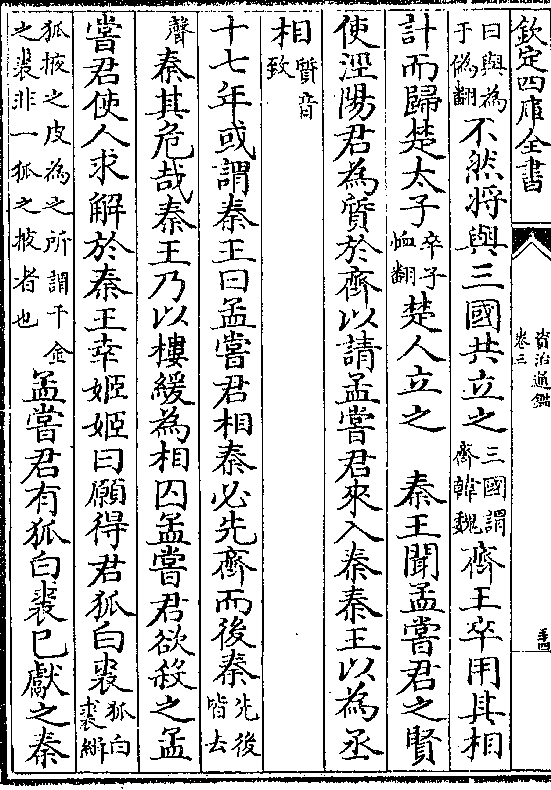 欽定四庫全書
資治通鑑
卷三
曰與為于偽翻不然将與三國共立之三國謂齊韓魏齊王卒用其相
計而歸楚太子卒子恤翻楚人立之 秦王聞孟嘗君之賢
使涇陽君為質於齊以請孟嘗君來入秦秦王以為丞
相質音致
十七年或謂秦王曰孟嘗君相秦必先齊而後秦先後皆去
聲秦其危哉秦王乃以樓緩為相囚孟嘗君欲殺之孟
嘗君使人求解於秦王幸姬姬曰願得君狐白裘狐白裘緝
狐掖之皮為之所謂千金之裘非一狐之掖者也孟嘗君有狐白裘已獻之秦